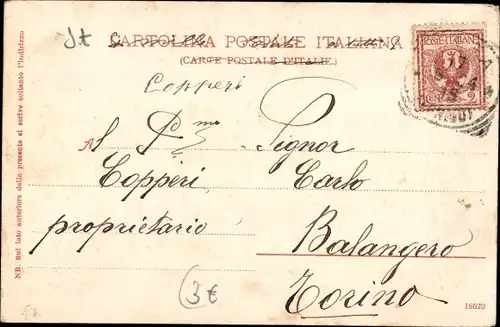 It
CARTOLINA POSTALE ITALIANA
(CARTE POSTALE D'ITALIE.)
Copperi
POSTE ITALIANE
CENT. 2
Al Pmo Signor
Copperi Carlo
proprietario
Balangero
Torino
3€
18620
NB. Sul lato anteriore della presente si scrive soltanto l'indirizzo